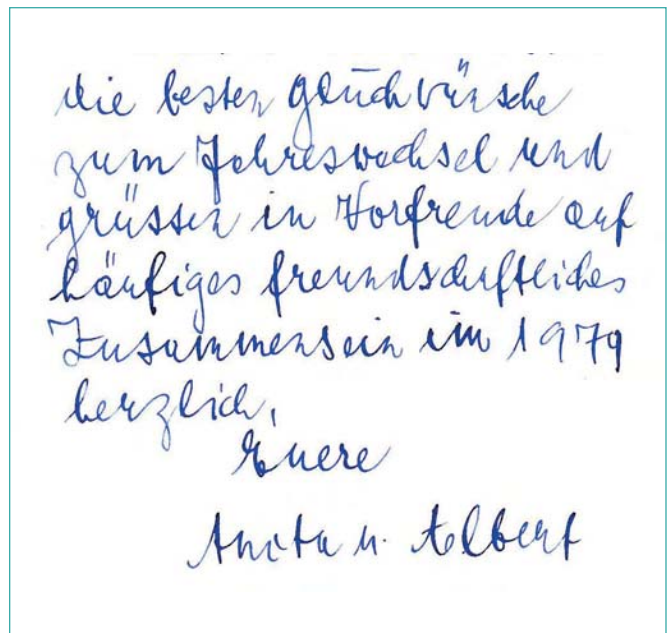 die besten Glückwünsche
zum Jahreswechsel und
grüssen in Vorfreude auf
häufiges freundschaftliches
Zusammensein im 1979
herzlich,
Euere
Anita u. Albert